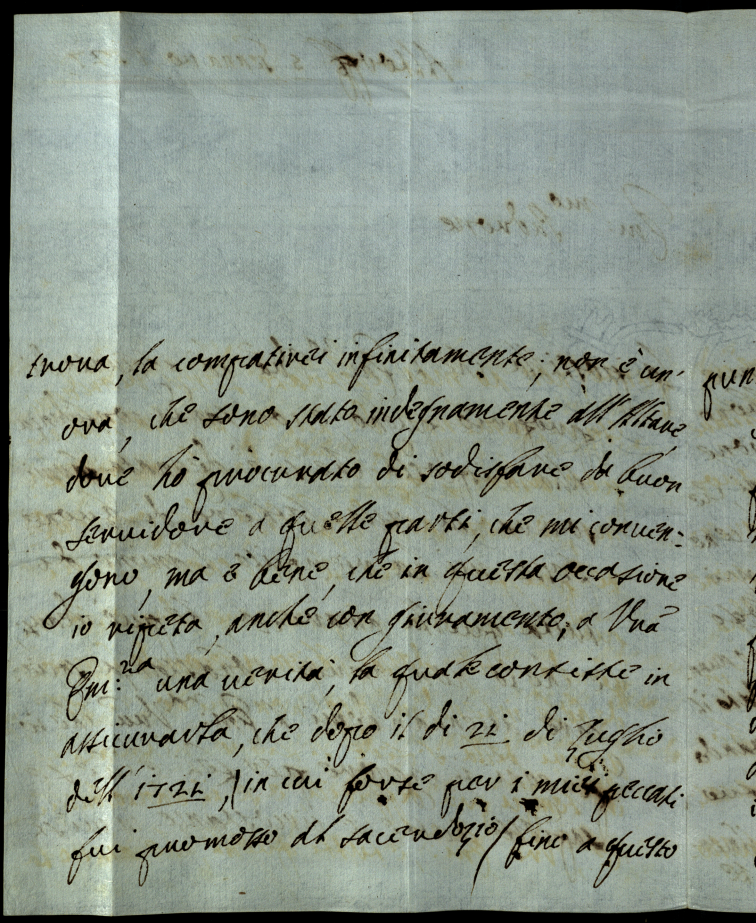 trova, la compatirei infinitamente; non è un'
ora, che sono stato indegnamente all'Altare
dove hò procurato di sodisfare da buon
servidore a quelle parti, che mi conven-
gono, ma è bene, che in questa occasione
io ripeta, anche con giuramento, a Vrã
Em:za una verità, la quale consiste in
assicurarla, che dopo il di 21 di Luglio
dell' 1721, /in cui forse per i miei peccati
fui promosso al sacerdozio/ fino a questo